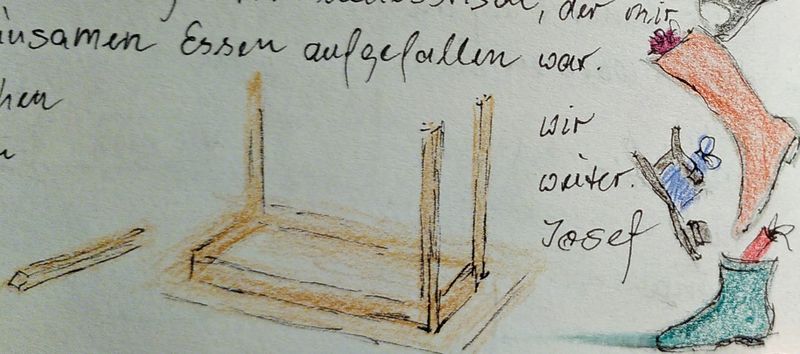 der mir
insamen Essen aufgefallen war.
hen
wir
weiter.
Josef